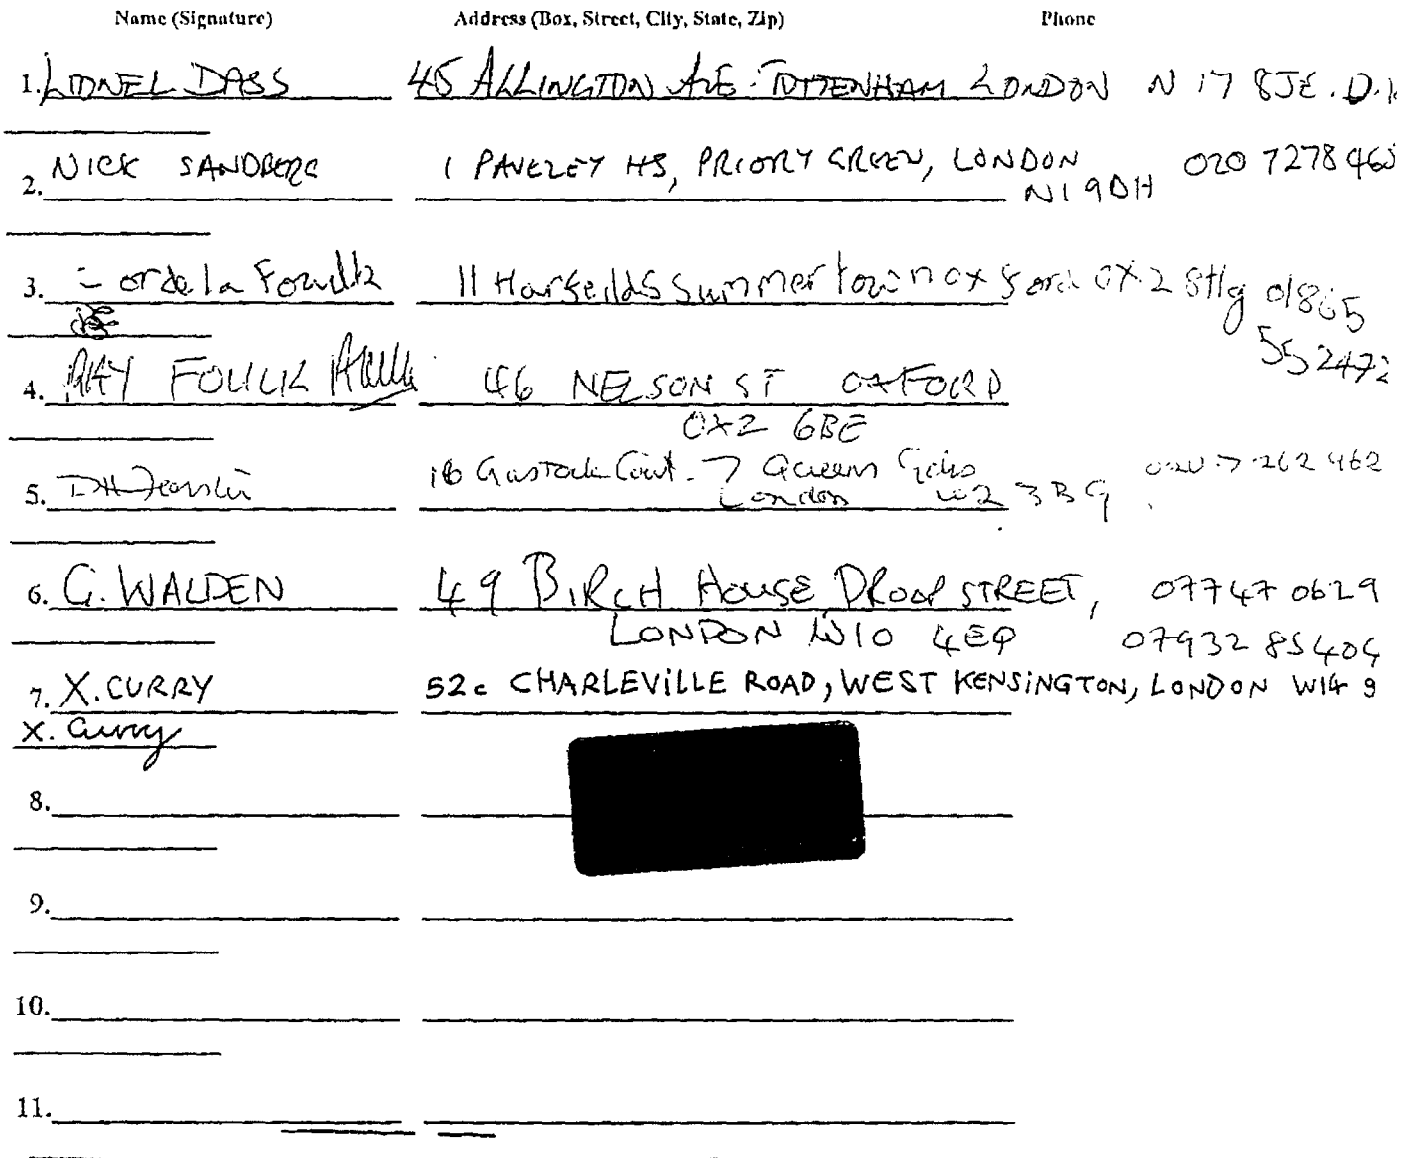 Name (Signature) Address (Box, Street, City, State, Zip) Phone
1. LIONEL DASS 45 ALLINGTON AVE. TOTTENHAM LONDON N 17 8JE. D.
2. NICK SANDBERG 1 PAVELEY HS, PRIORY GREEN, LONDON 020 7278 460
N1 9DH
3. ordela Foulk 11 Summertown oxford OX2 8Hg 01865
552472
4. RAY FOULK 46 NELSON ST OXFORD
OX2 6BE
5. 16 Court. 7 Queens Gdns 7 262 462
London W2 3BG
6. G. WALDEN 49 BIRCH HOUSE DROOP STREET, 07747 0629
LONDON W10 4EQ 07932 85404
7. X. CURRY 52c CHARLEVILLE ROAD, WEST KENSINGTON, LONDON W14 9
X. Curry
8.
9.
10.
11.